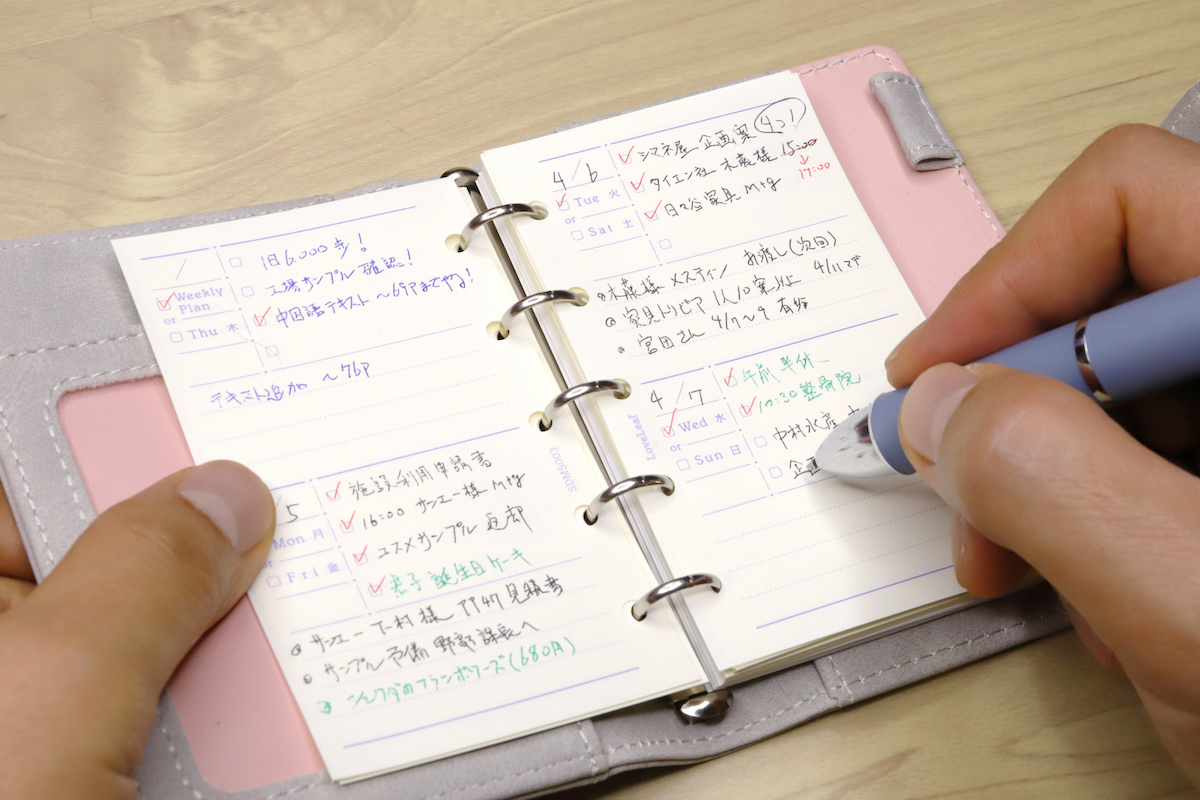 /
Weekly Plan
or
Thu 木
1日6,000歩!
工場サンプル確認!
中国語テキスト ～69Pまでやる!
テキスト追加 ～76P
5
Mon 月
or
Fri 金
施設利用申請書
16:00 サンエー様 Mtg
コスメサンプル 返却
誕生日ケーキ
サンエー 下村様 見積書
サンプル予備 野部課長へ
フランボワーズ(680円)
SDMS003
4/6
Tue 火
or
Sat 土
シマネ屋 企画案 4つ!
タイエン社 木藤様 15:00
↓
17:00
日々谷家具 Mtg
木藤様 メスティン お渡し(次回)
家具トリビア 1人10案以上 4/11マデ
宮田さん 4/7～9 有給
4/7
Wed 水
or
Sun 日
午前半休
10:30 整骨院
中村水産
企画
LoveLeaf